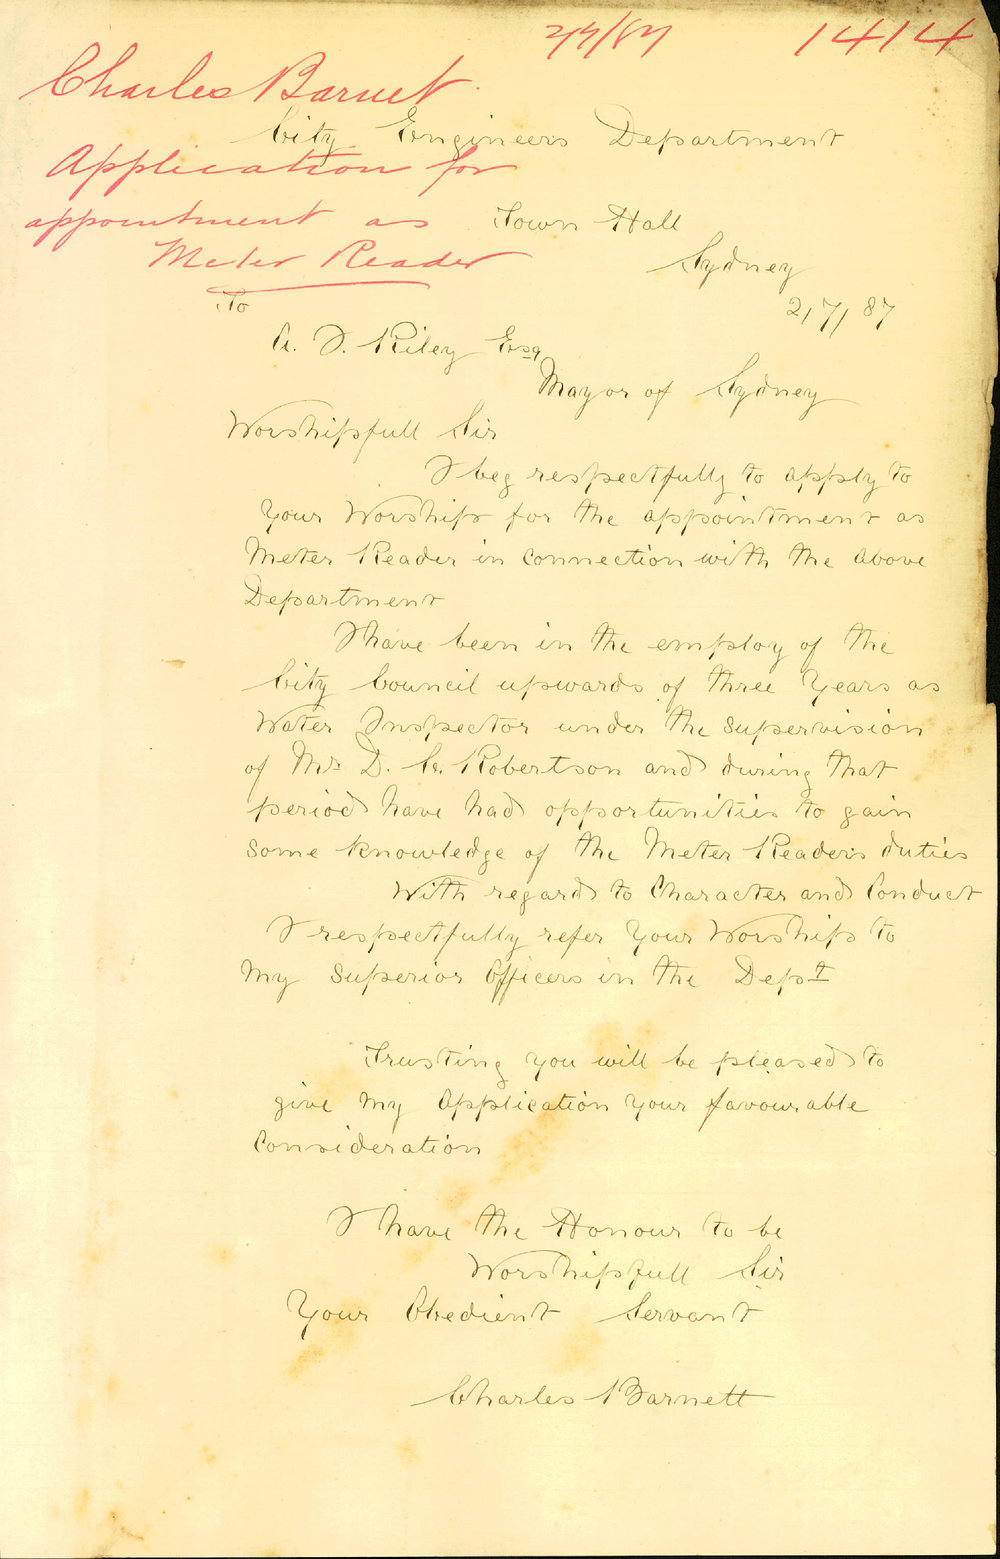 27/87 1414
Charles Barnet
City Engineers Department
Application for
appointment as
Town Hall
Meter Reader
Sydney
To
2/7/87
A. J. Riley Esq
Mayor of Sydney
Worshipfull Sir
I beg respectfully to apply to
Your Worship for the appointment as
Meter Reader in connection with the above
Department
I have been in the employ of the
City Council upwards of three Years as
Water Inspector under the supervision
of Mr D. Robertson and during that
period have had opportunities to gain
some knowledge of the Meter Readers duties
With regard to Character and Conduct
I respectfully refer Your Worship to
My Superior Officers in the Dept
Trusting you will be pleased to
give My Application Your favourable
Consideration
I have the Honour to be
Worshipfull Sir
Your Obedient Servant
Charles Barnett